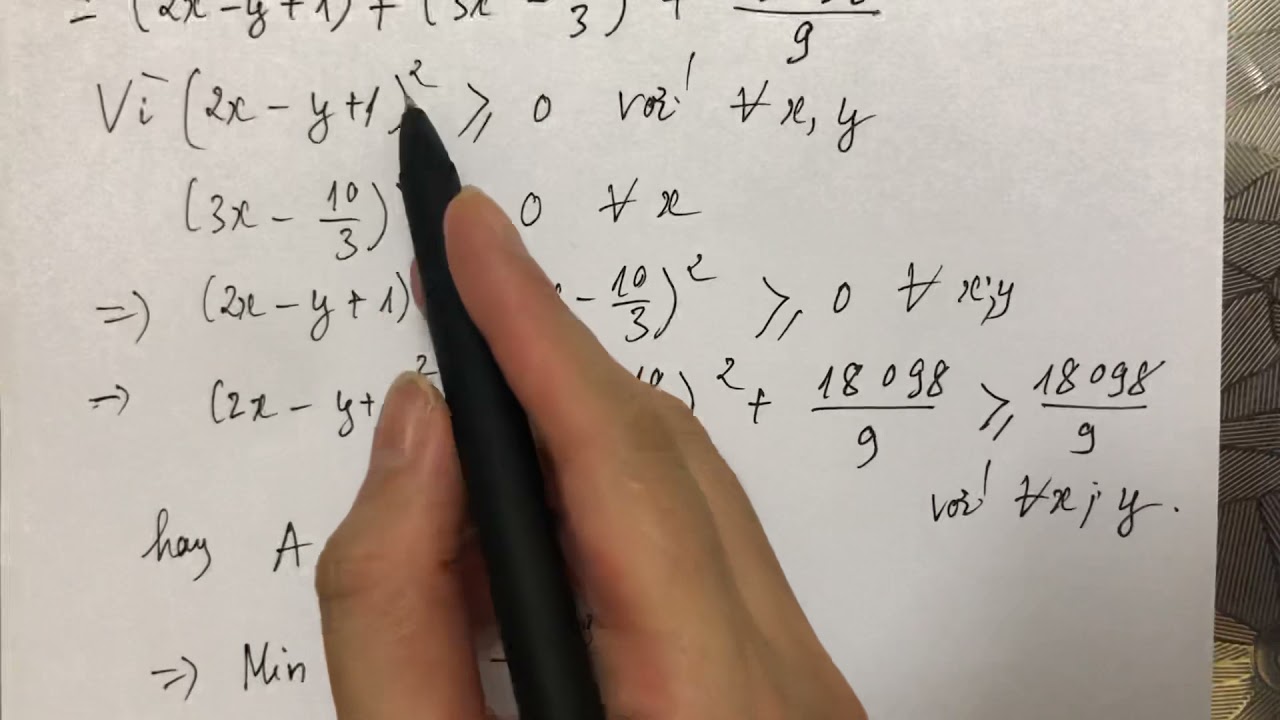 = (2x - y + 1) + (3x - /3) + /9
Vì (2x - y + 1)² ≥ 0 với ∀ x, y
(3x - 10/3) 0 ∀ x
=> (2x - y + 1) - 10/3)² ≥ 0 ∀ x; y
=> (2x - y + ² )² + 18 098/9 ≥ 18 098/9
với ∀x; y.
hay A
=> Min